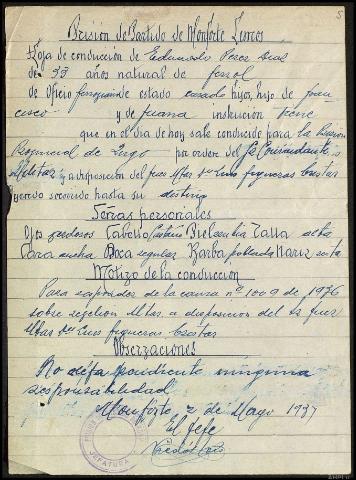 Prisión de Partido de Monforte Lemos
Hoja de conducción de Eduardo Perez Dias
de 33 años natural de ferrol
de oficio de estado casado hijos, hijo de fran
cisco y de Juana instrución tiene
que en el dia de hoy sale conducido para la Prision
Provincial de Lugo por orden del Sr Comandante
Militar y a disposición del Juez Mtar Luis figueras
socorrido hasta su destino
Señas personales
Ojos Cabello Castaño Piel Talla alta
Cara ancha Boca regular Barba poblada Nariz recta
Motivo de la conducción
Para responder de la causa nº 1009 de 1936
sobre revelion Mtar. a disposicion del Sr juez
Mtar Luis figueras
Observaciones
No defa pendiente ninguna
responsabilidad
Monforte 2 de Mayo 1937
El Jefe
JEFATURA